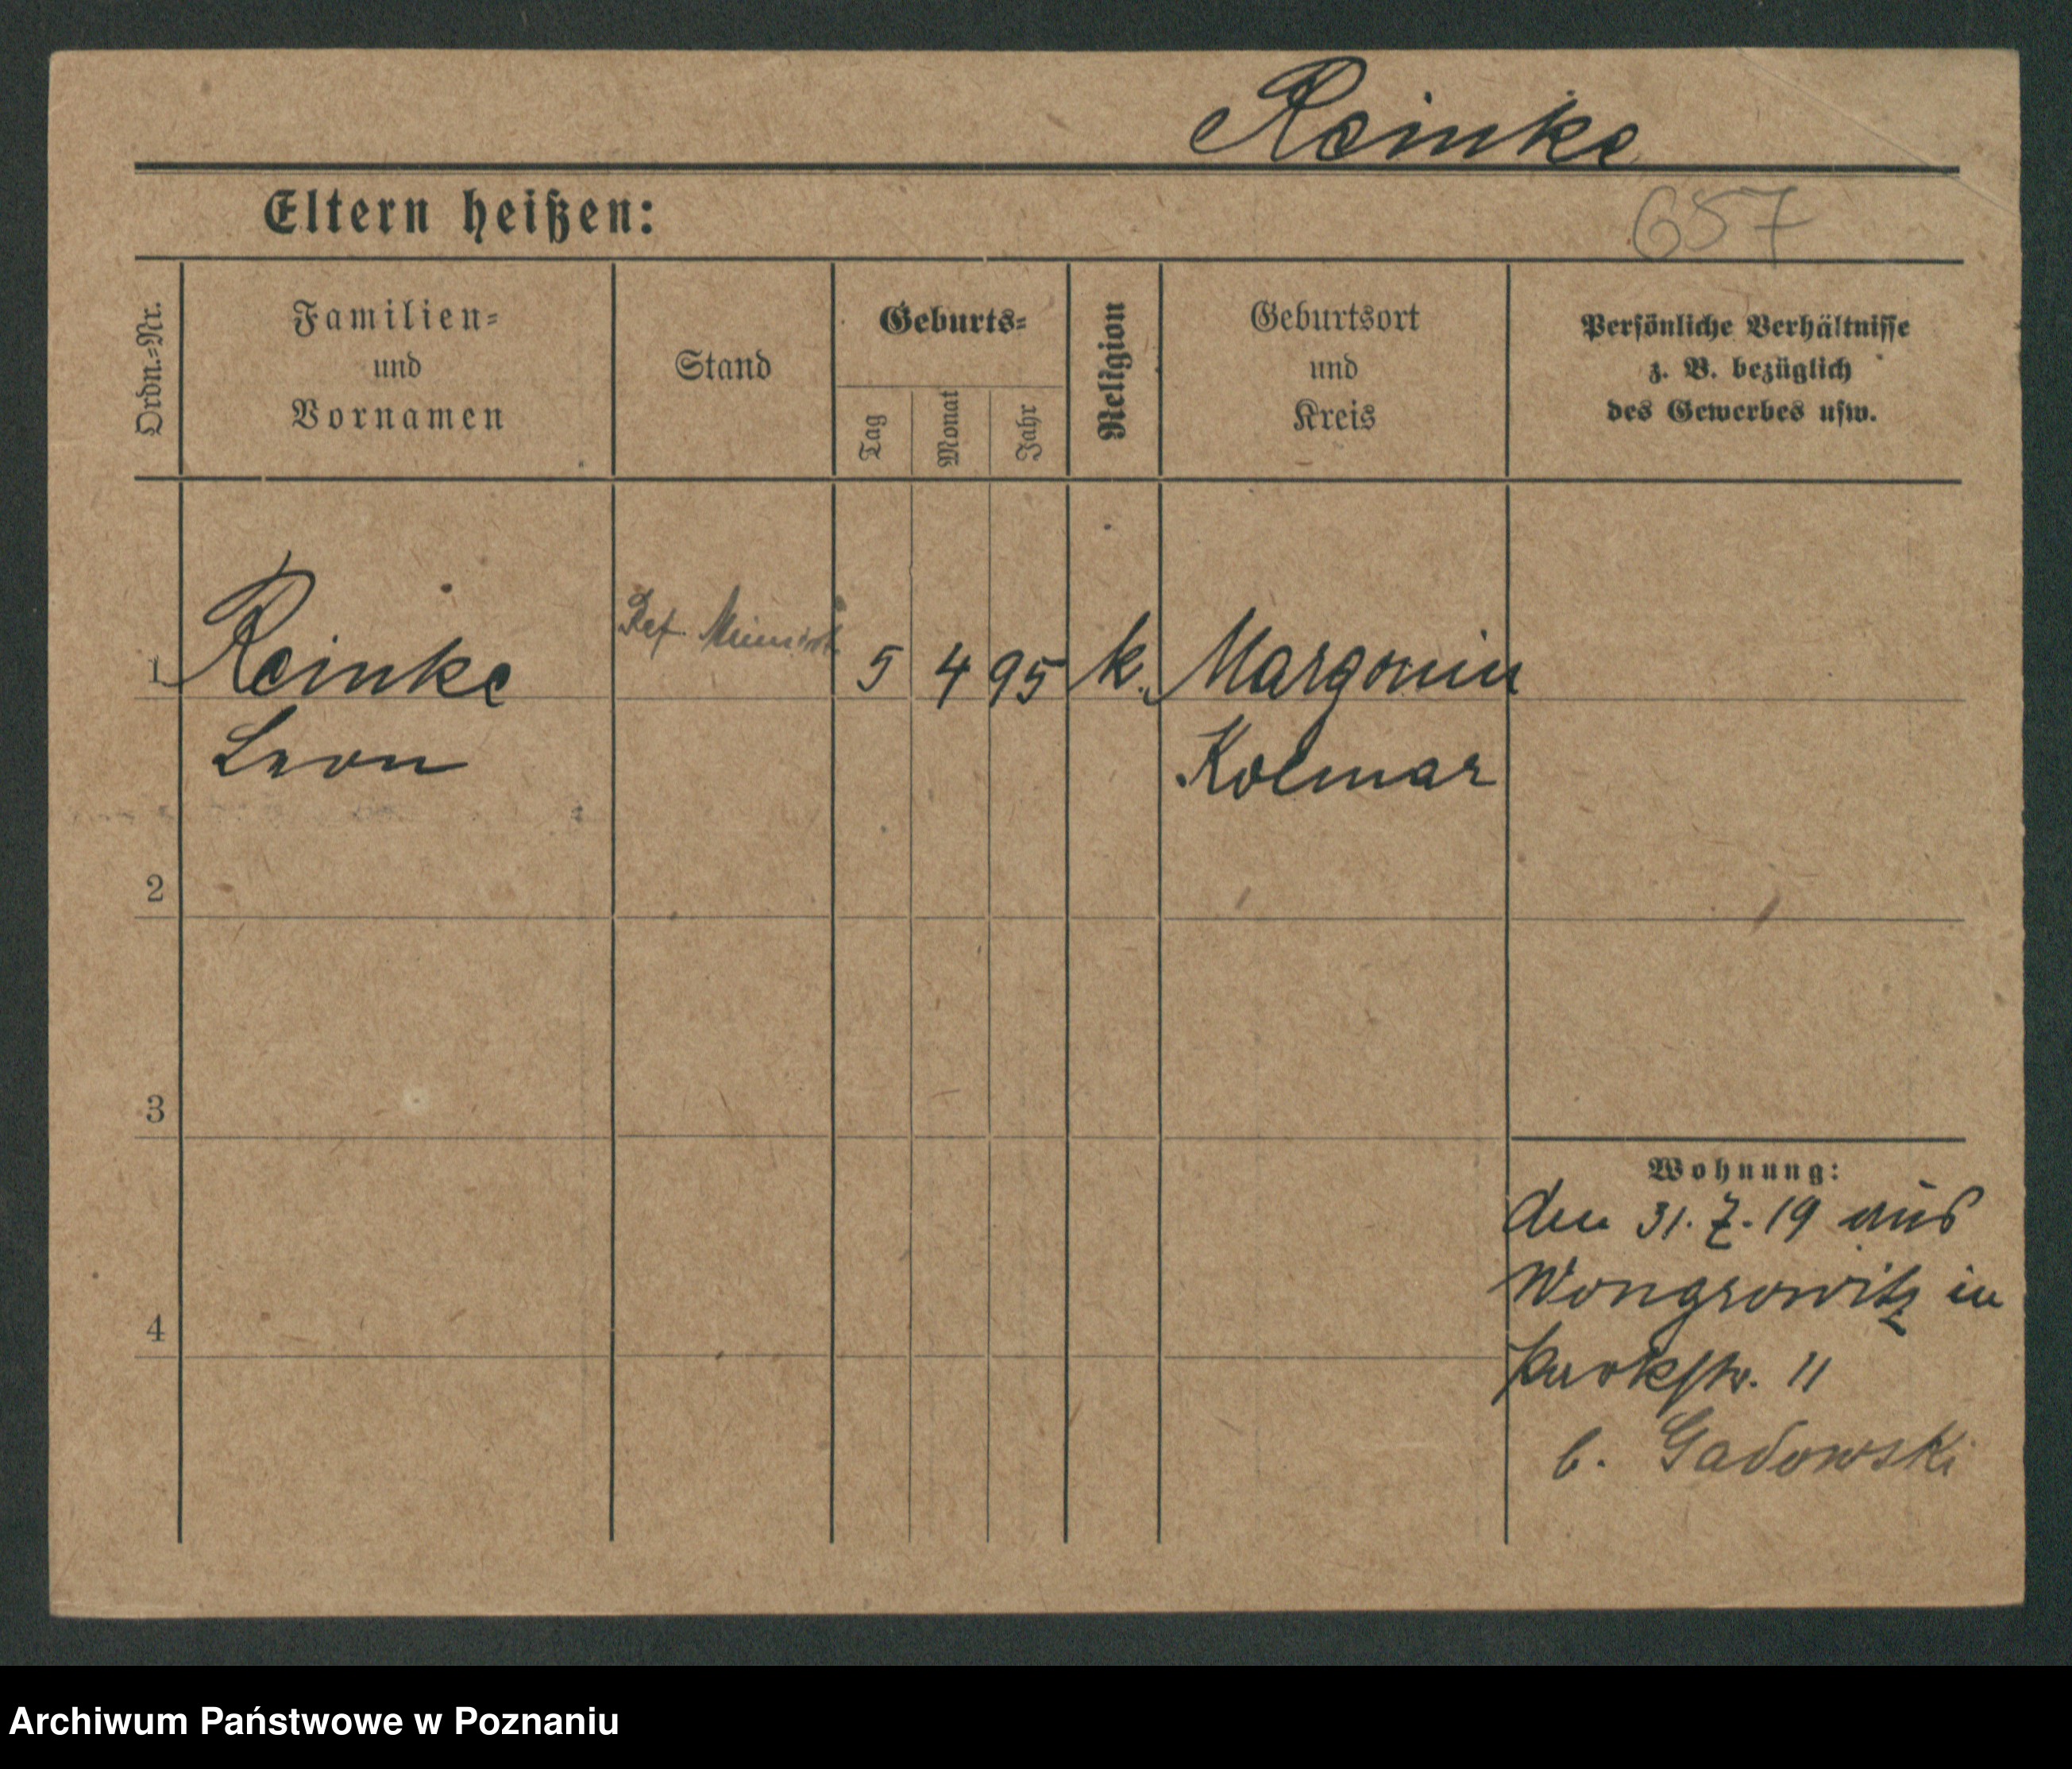 Reinke
Eltern heißen:
657
Ordn.-Nr.
Familien-
und
Vornamen
Stand
Geburts-
Tag
Monat
Jahr
Religion
Geburtsort
und
Kreis
Persönliche Verhältnisse
z. B. bezüglich
des Gewerbes usw.
1 Reinke Ref. 5 4 95 k. Margonin
Leon Kolmar
2
3
Wohnung:
den 31.7.19 aus
Wongrowitz in
4
Parkstr. 11
b. Gadowski
Archiwum Państwowe w Poznaniu